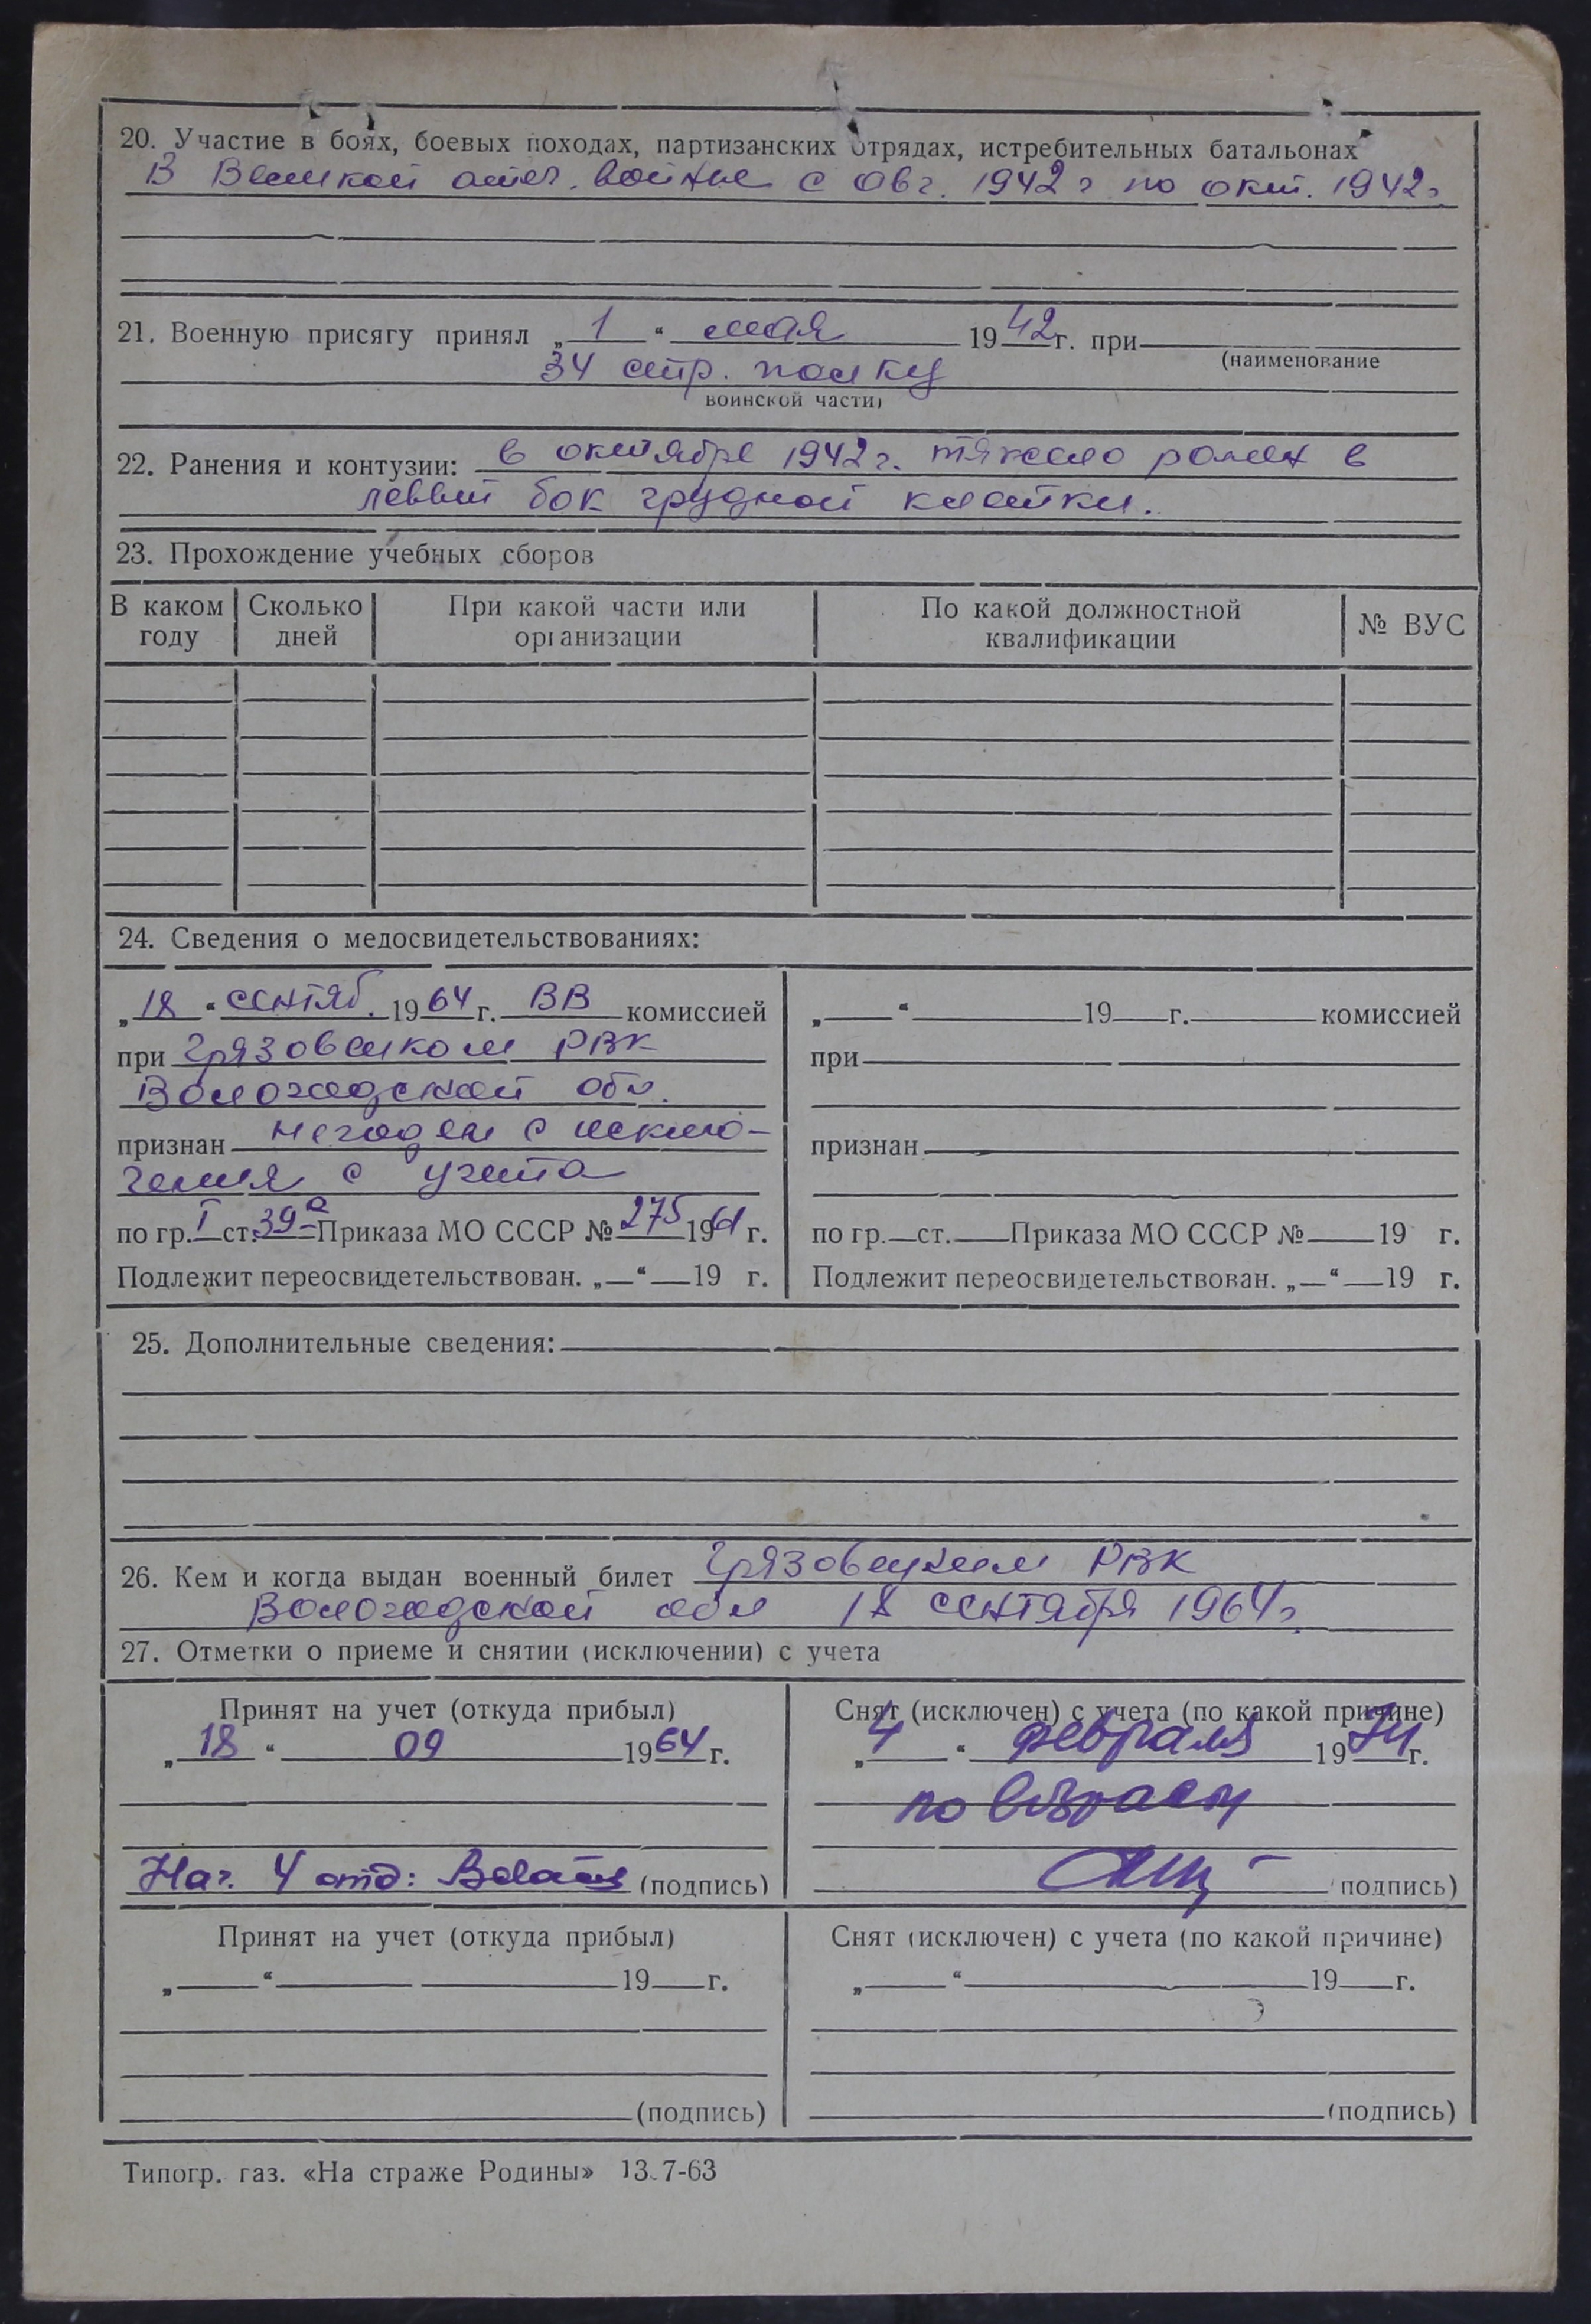 20. Участие в боях, боевых походах, партизанских отрядах, истребительных батальонах
В Великой отеч. войне с авг. 1942 г по окт. 1942г
21. Военную присягу принял „1“ мая 1942г. при
(наименование
34 стр. полку
воинской части)
22. Ранения и контузии: в октябре 1942г. тяжело ранен в
леввый бок грудной клетки.
23. Прохождение учебных сборов
В каком году Сколько дней При какой части или организации По какой должностной квалификации № ВУС
24. Сведения о медосвидетельствованиях:
„18“ сентяб. 1964 г. ВВ комиссией
при Грязовецком РВК
Вологодской обл.
признан негоден с исклю-
чения с учета
по гр. I ст. 39а Приказа МО СССР № 275 1961 г.
Подлежит переосвидетельствован. „ “ 19 г.
„ “ 19 г. комиссией
при
признан
по гр. ст. Приказа МО СССР № 19 г.
Подлежит переосвидетельствован. „ “ 19 г.
25. Дополнительные сведения:
26. Кем и когда выдан военный билет Грязовецким РВК
Вологодской обл 18 сентября 1964г.
27. Отметки о приеме и снятии (исключении) с учета
Принят на учет (откуда прибыл)
„18“ 09 1964 г.
Нач. 4 отд: (подпись)
Снят (исключен) с учета (по какой причине)
„4“ февраля 1974 г.
по возрасту
(подпись)
Принят на учет (откуда прибыл)
„ “ 19 г.
(подпись)
Снят (исключен) с учета (по какой причине)
„ “ 19 г.
(подпись)
Типогр. газ. «На страже Родины» 13.7-63